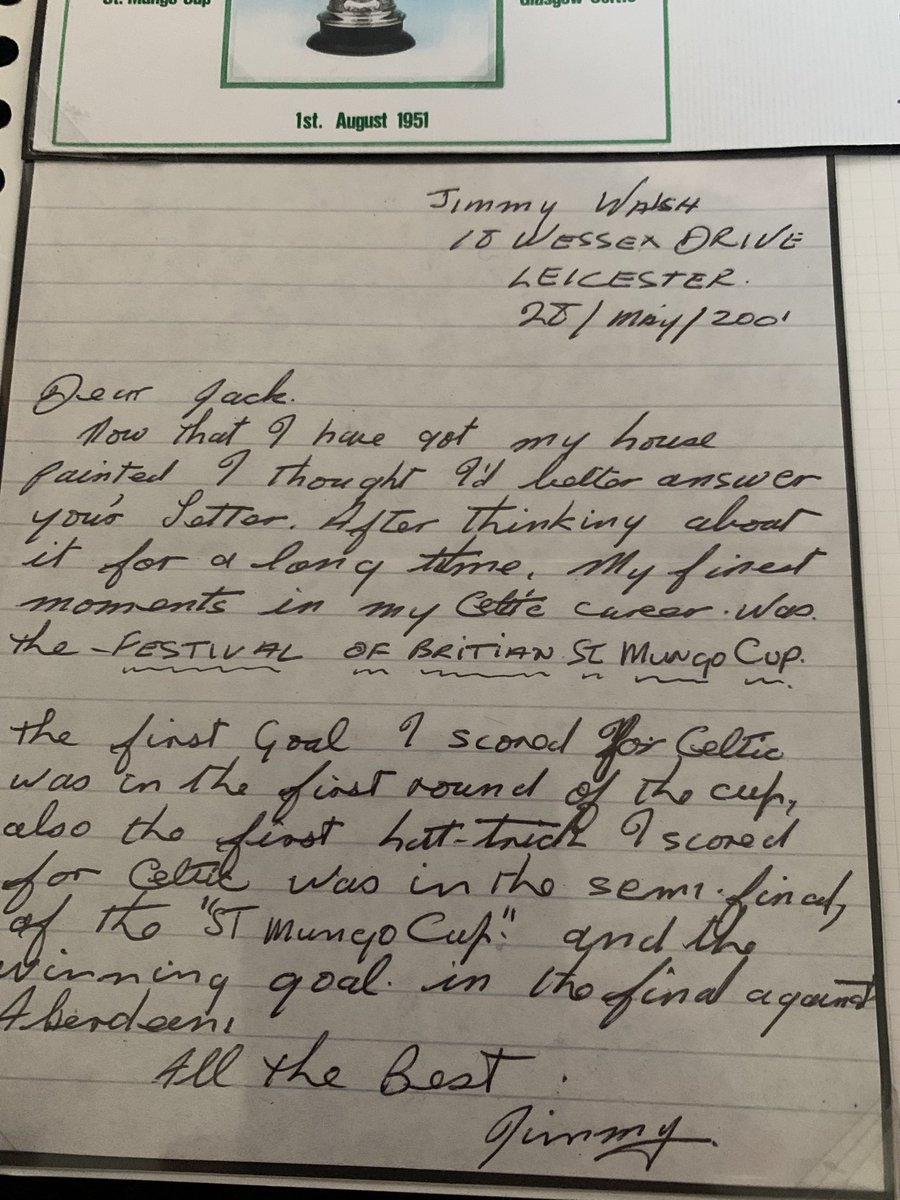 St. Mungo Cup
Glasgow Celtic
1st. August 1951
Jimmy Walsh
18 WESSEX DRIVE
LEICESTER.
28/May/2001
Dear Jack.
Now that I have got my house
painted I thought I'd better answer
your's Letter. After thinking about
it for a long time. My finest
moments in my Celtic career. was.
the FESTIVAL OF BRITIAN ST MUNGO CUP.
the first Goal I scored For Celtic
was in the first round of the cup,
also the first hatt-trick I scored
for Celtic was in the semi-final,
of the "ST MUNGO CUP" and the
winning goal. in the final against
Aberdeen,
All the Best.
Jimmy.